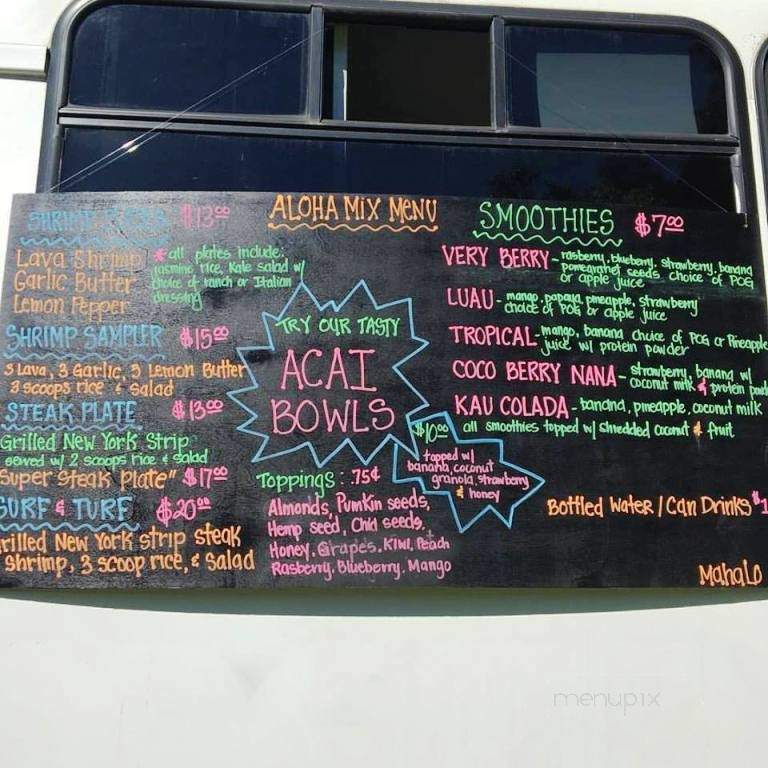 ALOHA MIX MENU
SHRIMP PLATES $13.00
Lava Shrimp
Garlic Butter
Lemon Pepper
*all plates include:
jasmine rice, Kale salad w/
choice of ranch or Italian
dressing
SHRIMP SAMPLER $15.00
3 Lava, 3 Garlic, 3 Lemon Butter
2 scoops rice & Salad
STEAK PLATE $13.00
Grilled New York Strip
served w/ 2 scoops rice & salad
Super Steak Plate" $17.00
SURF & TURF $20.00
rilled New York strip steak
Shrimp, 3 scoop rice, & Salad
TRY OUR TASTY
ACAI
BOWLS
$10.00
topped w/
banana, coconut
granola, strawberry
& honey
Toppings: .75¢
Almonds, Pumkin seeds,
Hemp seed, Chia seeds,
Honey, Grapes, Kiwi, Peach
Rasberry, Blueberry, Mango
SMOOTHIES $7.00
VERY BERRY - rasberry, blueberry, strawberry, banana
pomegranet seeds choice of POG
or apple juice
LUAU - mango, papaya, pineapple, strawberry
choice of POG or apple juice
TROPICAL - mango, banana choice of POG or Pineapple
juice w/ protein powder
COCO BERRY NANA - strawberry, banana w/
coconut milk & protein powd
KAU COLADA - banana, pineapple, coconut milk
all smoothies topped w/ shredded coconut & fruit
Bottled Water / Can Drinks $1
Mahalo
menupix